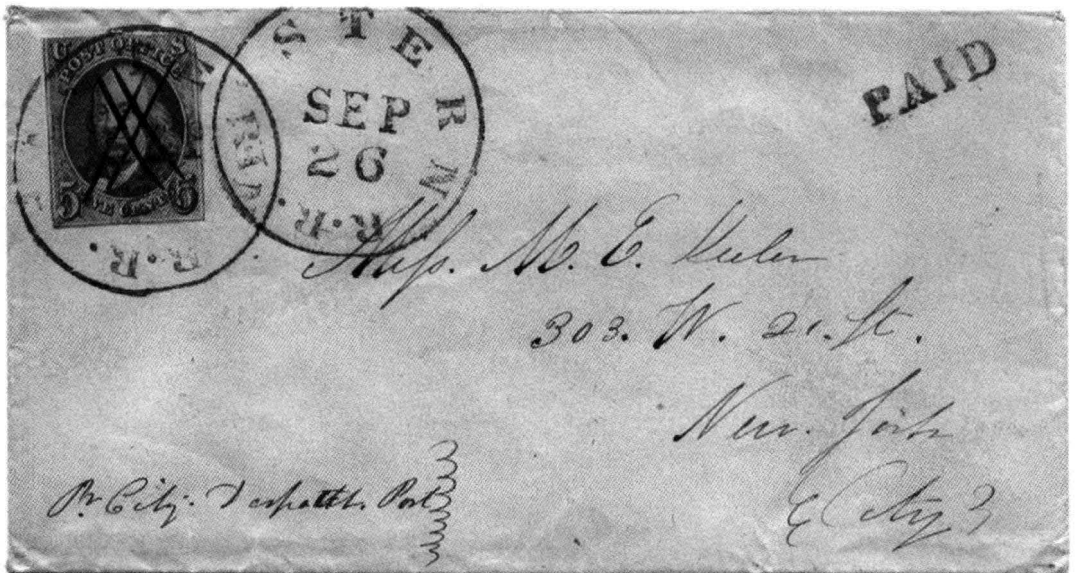 U S
POST OFFICE
5 FIVE CENTS 5
R.R.
STERN R.R.
SEP
26
PAID
Miss. M. E.
303. W. 21. St.
New. York
City
Pr City. Despatch. Post